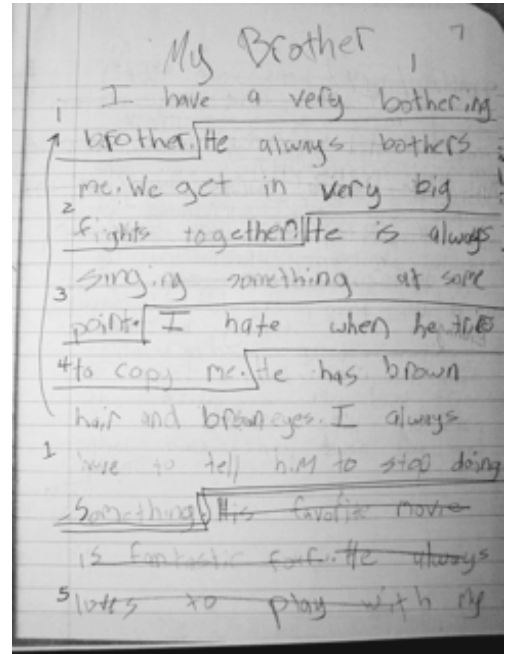 My Brother 7
1 I have a very bothering
brother. He always bothers
me. We get in very big
2
fights together. He is always
3 singing something at some
point. I hate when he tries
4 to copy me. He has brown
hair and brown eyes. I always
1 have to tell him to stop doing
something. His favorite movie
is fantastic four. He always
5 loves to play with my